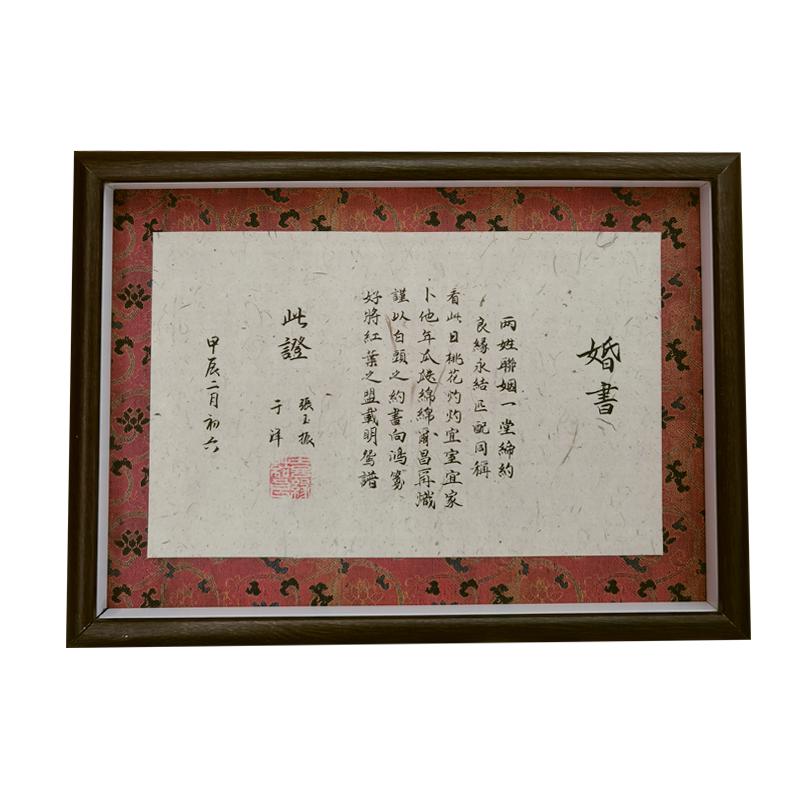 婚書
两姓聯姻一堂締約
良緣永結匹配同稱
看此日桃花灼灼宜室宜家
卜他年瓜瓞綿綿爾昌爾熾
謹以白頭之約書向鴻箋
好將紅葉之盟載明鴛譜
此證
張玉振
于洋
甲辰二月初六